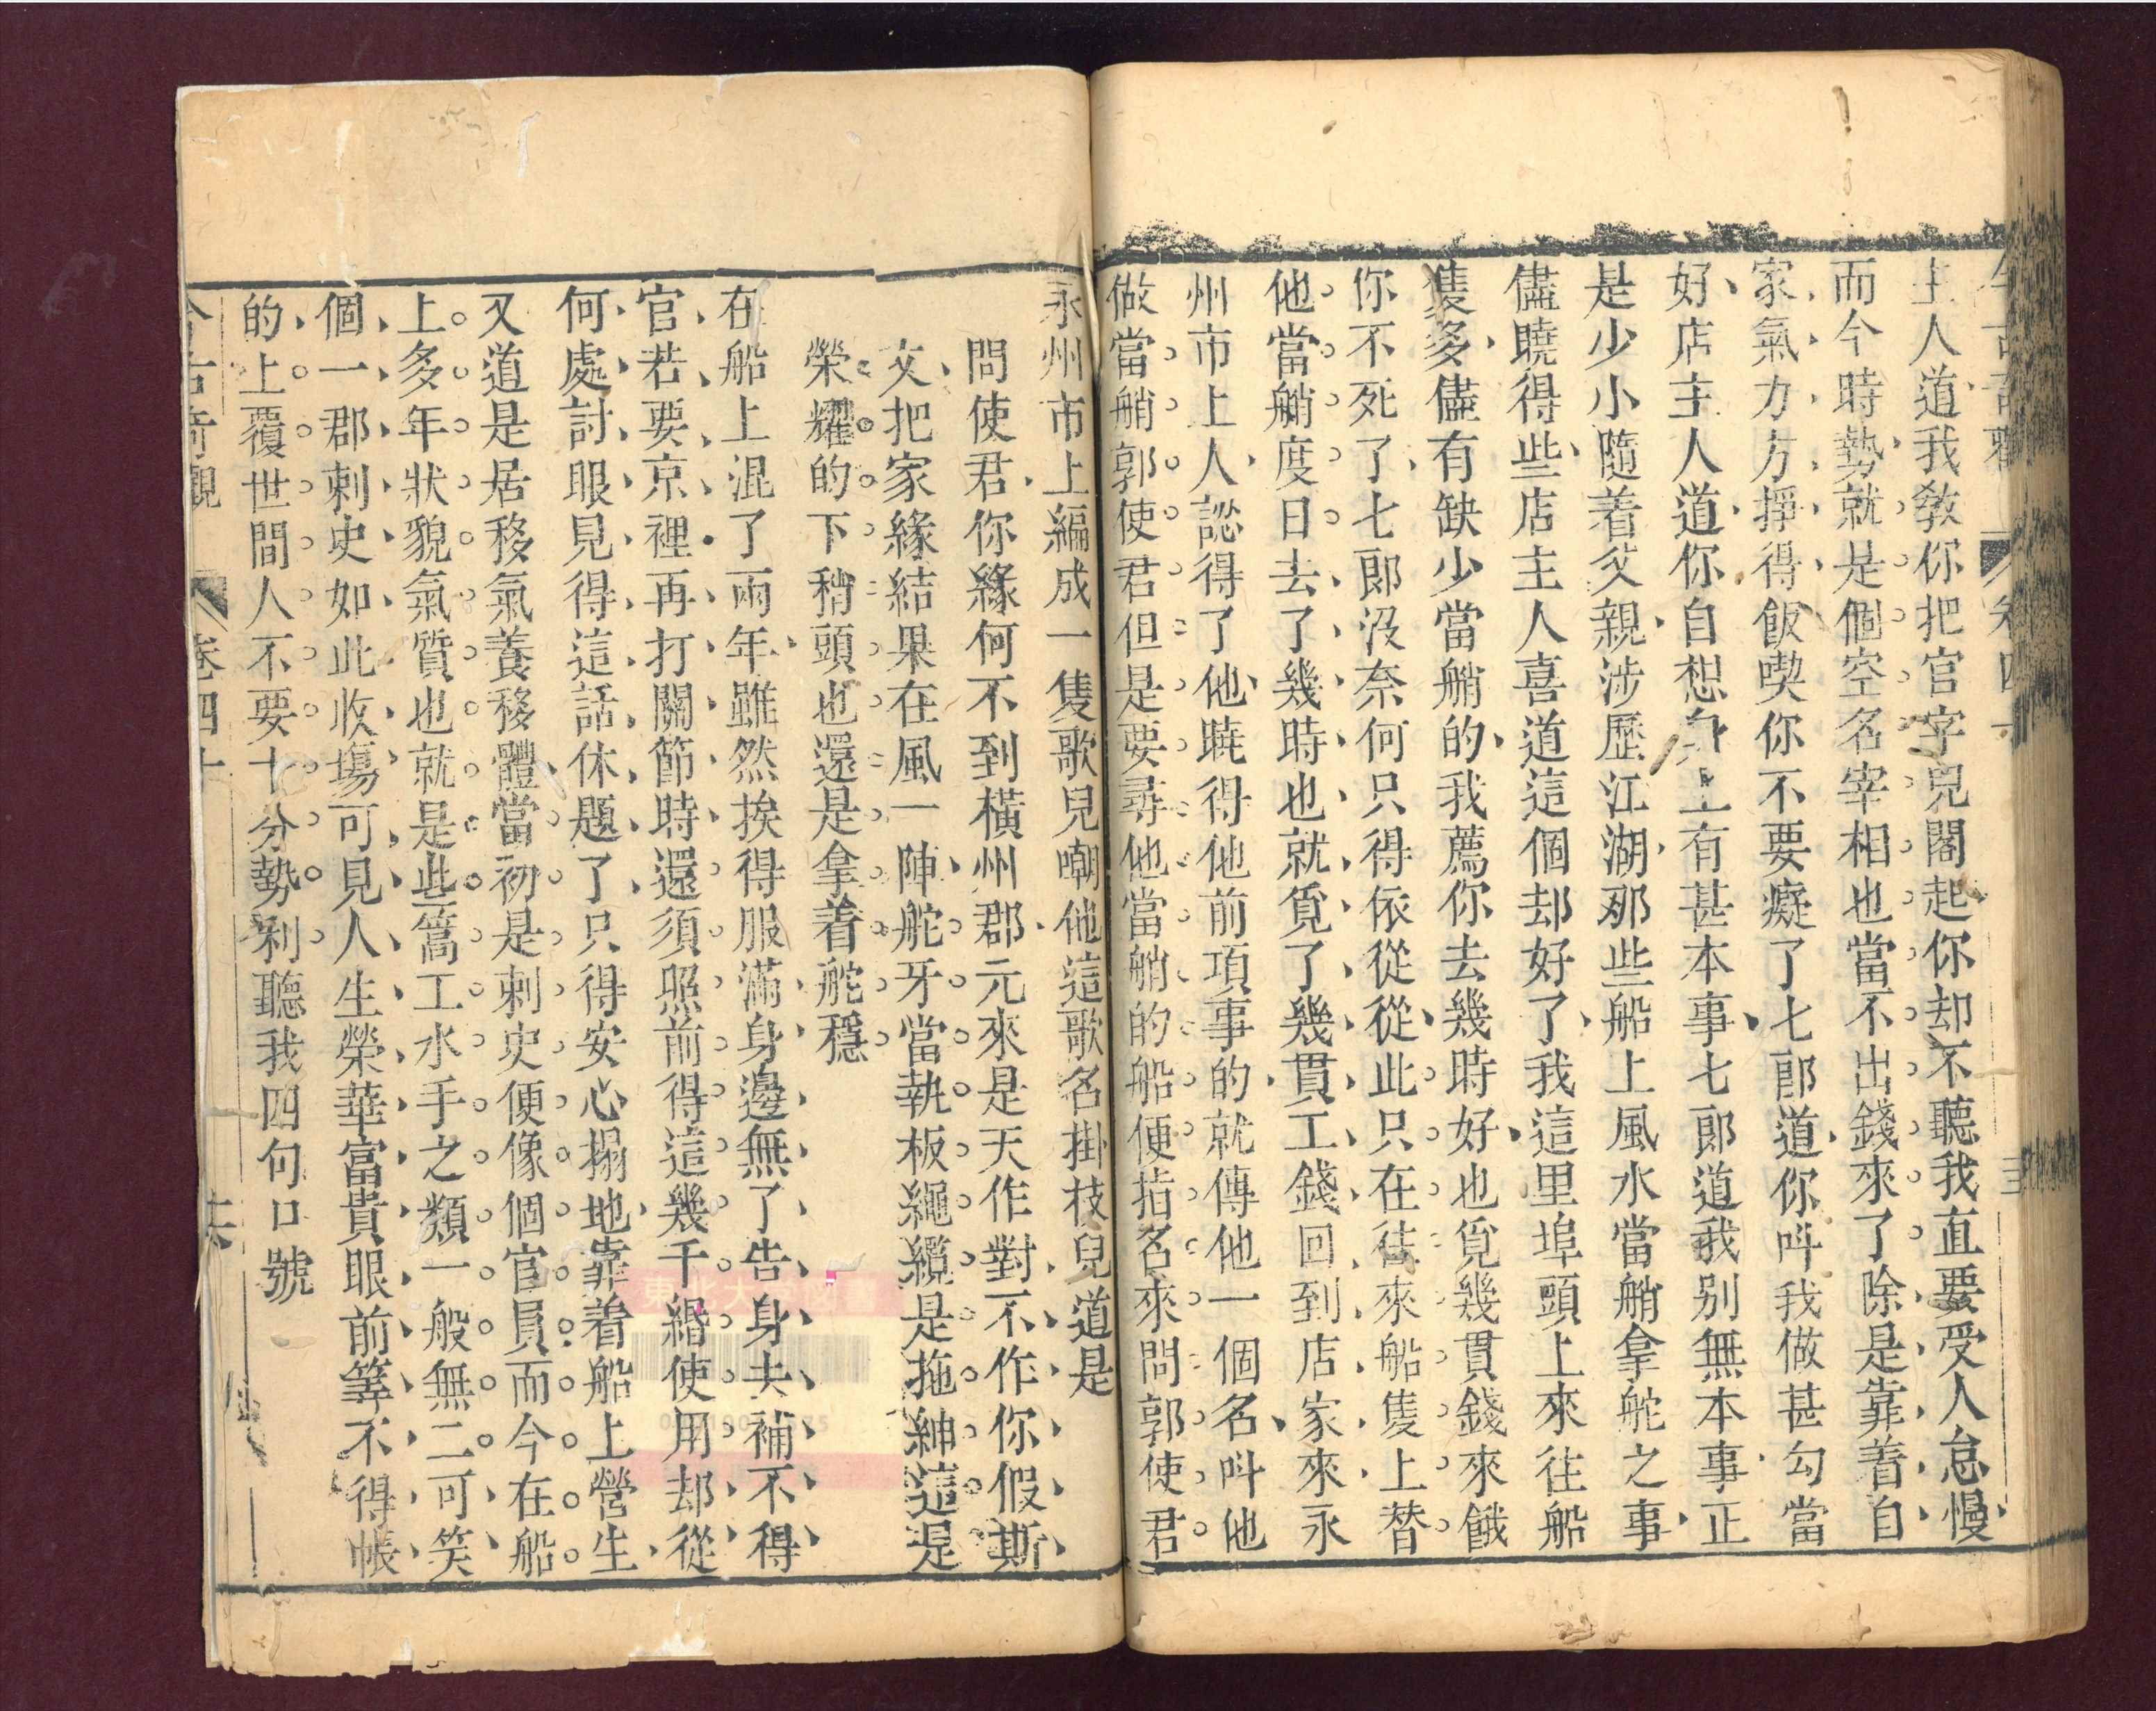 主人道我教你把官字兒閣起你却不聽我直要受人怠慢
而今時勢就是個空名宰相也當不出錢來了除是靠着自
家氣力方掙得飯喫你不要癡了七郎道你呌我做甚勾當
好店主人道你自想身上有甚本事七郎道我别無本事正
是少小隨着父親涉歷江湖那些船上風水當艄拿舵之事
儘曉得些店主人喜道這個却好了我這里埠頭上來往船
隻多儘有缺少當艄的我薦你去幾時好也覓幾貫錢來餓
你不死了七郎沒奈何只得依從從此只在往來船隻上替
他當艄度日去了幾時也就覓了幾貫工錢回到店家來永
州市上人認得了他曉得他前項事的就傳他一個名呌他
做當艄郭使君但是要尋他當艄的船便指名來問郭使君
永州市上編成一隻歌兒嘲他這歌名掛枝兒道是
問使君你緣何不到橫州郡元來是天作對不作你假斯
文把家緣結果在風一陣舵牙當執板繩纜是拖紳這是
榮耀的下稍頭也還是拿着舵穩
在船上混了兩年雖然挨得服滿身邊無了告身去補不得
官若要京裡再打關節時還須照前得這幾千緡使用却從
何處討眼見得這話休題了只得安心搨地靠着船上營生
又道是居移氣養移體當初是刺史便像個官員而今在船
上多年狀貌氣質也就是些篙工水手之類一般無二可笑
個一郡刺史如此收塲可見人生榮華富貴眼前筭不得帳
的上覆世間人不要十分勢利聽我四句口號
今古奇觀 卷四十